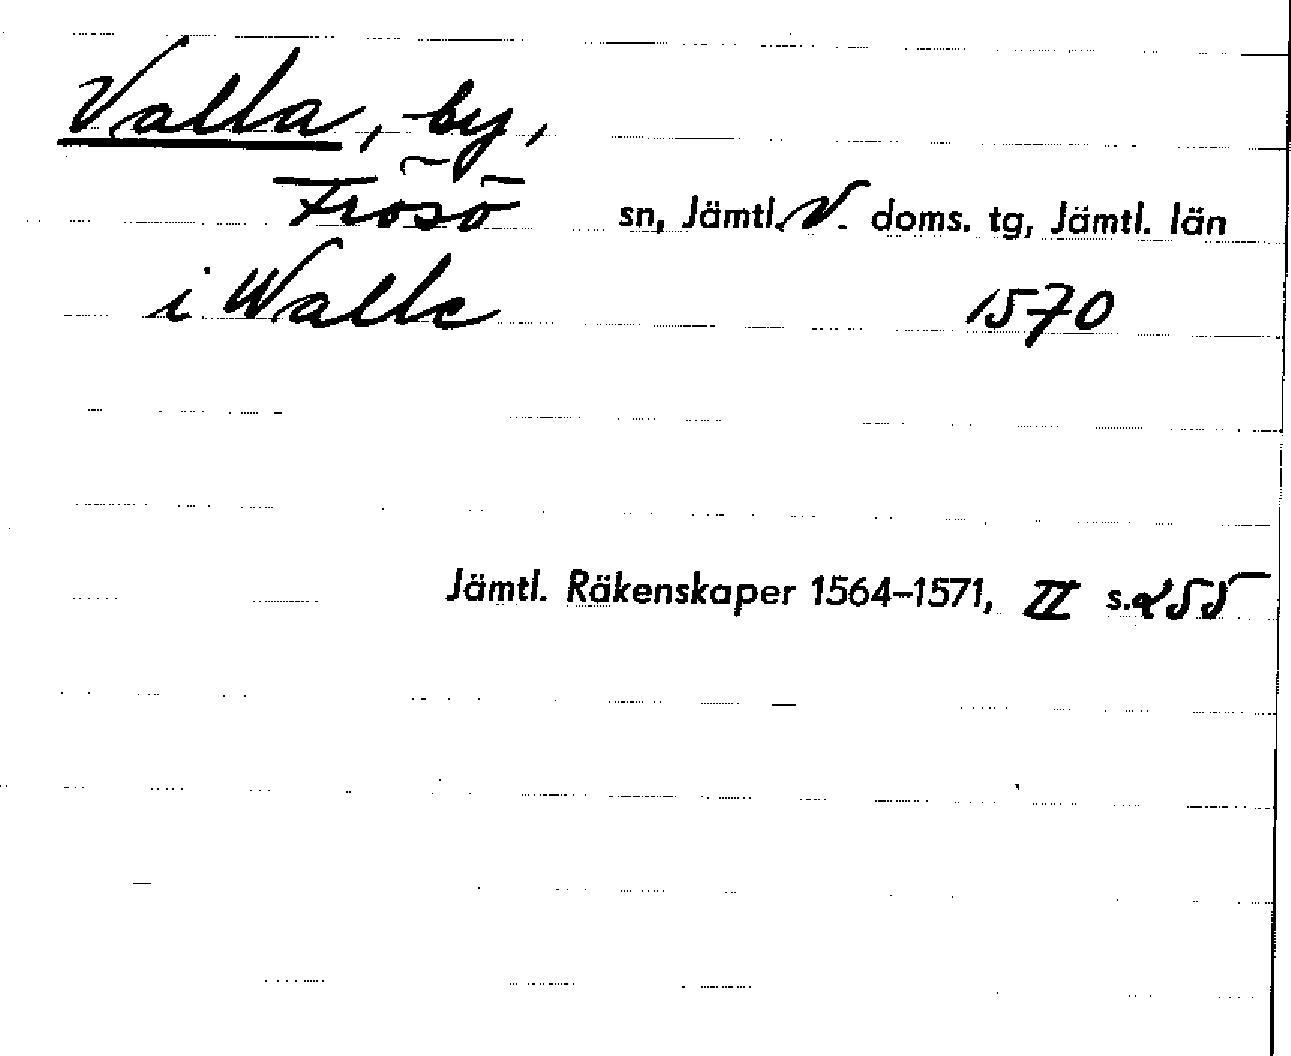 Valla, by,
Frösö sn, Jämtl. V. doms. tg, Jämtl. län
i Walle 1570
Jämtl. Räkenskaper 1564–1571, II s. 255